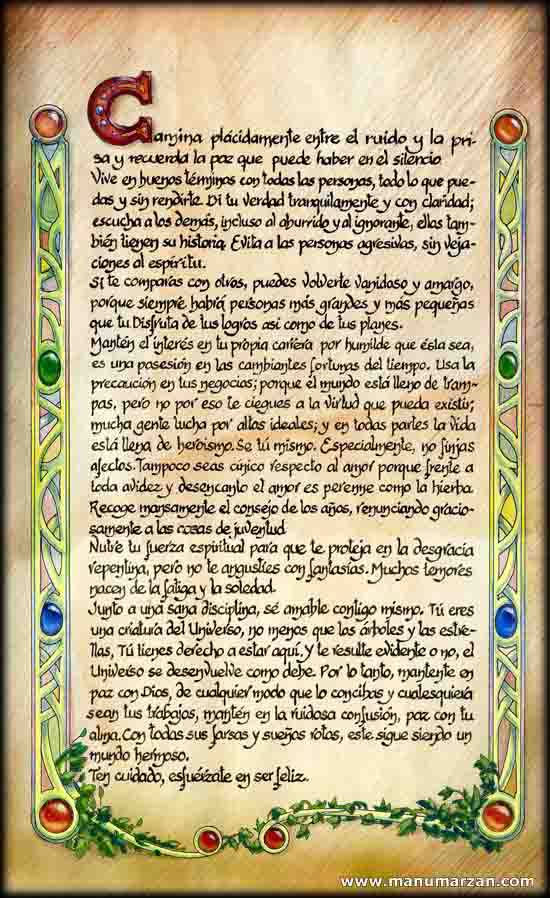 Camina plácidamente entre el ruido y la pri-
sa y recuerda la paz que puede haber en el silencio
Vive en buenos términos con todas las personas, todo lo que pue-
das y sin rendirte. Di tu verdad tranquilamente y con claridad;
escucha a los demás, incluso al aburrido y al ignorante, ellas tam-
bién tienen su historia. Evita a las personas agresivas, sin veja-
ciones al espíritu.
Si te comparas con otros, puedes volverte vanidoso y amargo,
porque siempre habrá personas más grandes y más pequeñas
que tu. Disfruta de tus logros asi como de tus planes.
Mantén el interés en tu propia carrera por humilde que ésta sea,
es una posesión en las cambiantes fortunas del tiempo. Usa la
precaución en tus negocios; porque el mundo está lleno de tram-
pas, pero no por eso te ciegues a la virtud que pueda existir;
mucha gente lucha por altos ideales; y en todas partes la vida
está llena de heroismo. Se tú mismo. Especialmente, no finjas
afectos. Tampoco seas cínico respecto al amor porque frente a
toda avidez y desencanto el amor es perenne como la hierba.
Recoge mansamente el consejo de los años, renunciando gracio-
samente a las cosas de juventud
Nutre tu fuerza espiritual para que te proteja en la desgracia
repentina, pero no te angusties con fantasías. Muchos temores
nacen de la fatiga y la soledad.
Junto a una sana disciplina, sé amable contigo mismo. Tú eres
una criatura del Universo, no menos que los árboles y las estre-
llas, Tú tienes derecho a estar aquí. Y te resulte evidente o no, el
Universo se desenvuelve como debe. Por lo tanto, mantente en
paz con Dios, de cualquier modo que lo concibas y cualesquiera
sean tus trabajos, mantén en la ruidosa confusión, paz con tu
alma. Con todas sus farsas y sueños rotos, este sigue siendo un
mundo hermoso.
Ten cuidado, esfuérzate en ser feliz.
www.manumarzan.com